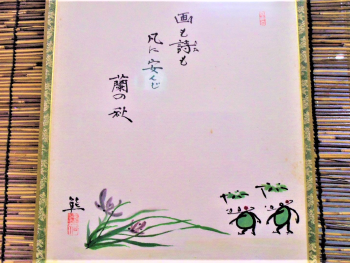 画も詩も
凡に安んじ
蘭の秋